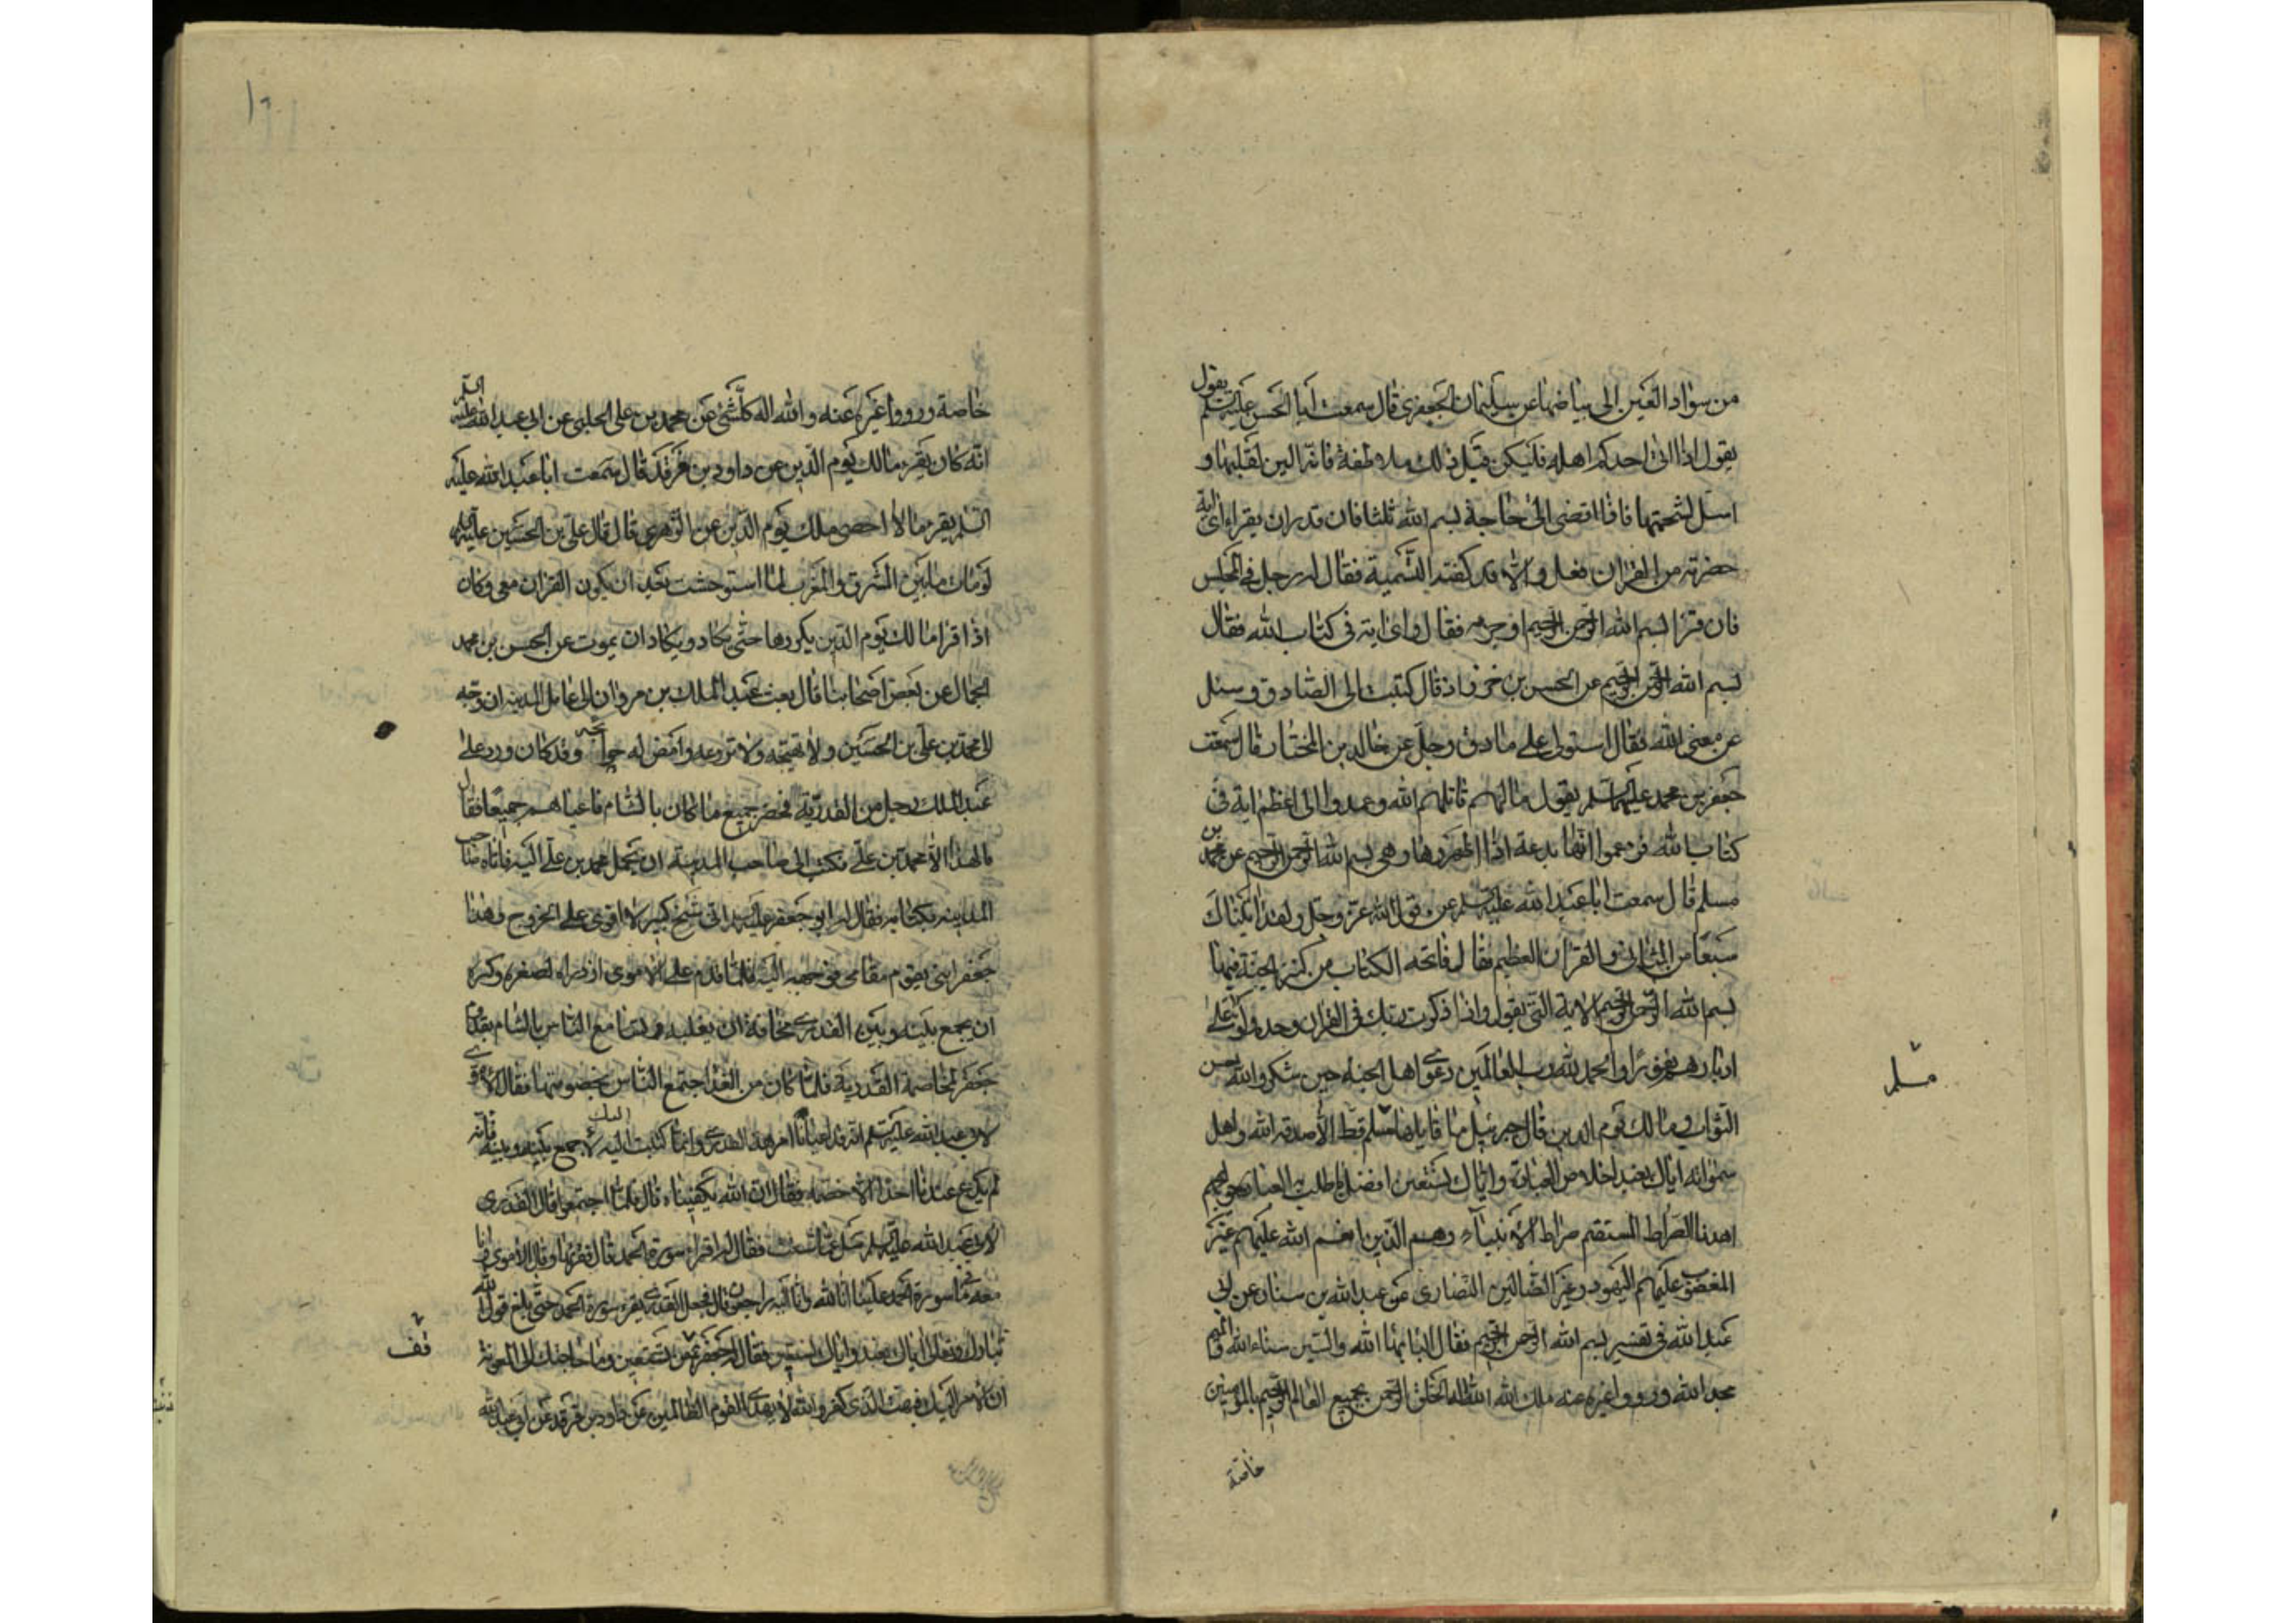 من سواد العين الى بياضها عن سليمان الجعفري قال سمعت أبا الحسن عليه السلم يقول
يقول اذا اتى احدكم اهله فليكن قبل ذلك ملاطفة فانه الين لقلبها و
اسل لسخمتها فاذا افضى الى حاجة بسم الله ثلثا فان قدر ان يقراء اى اية
حضرته من القران فعل والا قد كفته التسمية فقال له رجل في المجلس
فان قرا بسم الله الرحمن الرحيم اوجره فقال واى اية فى كتاب الله فقال
بسم الله الرحمن الرحيم عن الحسن بن خرزاذ قال كتبت الى الصادق وسئل
عن معنى الله فقال استولى على ما دق وجل عن خالد بن المختار قال سمعت
جعفر بن محمد عليهما السلم يقول ما لهم قاتلهم الله وعمدوا الى اعظم اية فى
كتاب الله فزعموا انها بدعة اذا اظهروها وهى بسم الله الرحمن الرحيم عن محمد بن
مسلم قال سمعت ابا عبد الله عليه السلم عن قول الله عز وجل ولقد اتيناك
سبعا من المثانى والقران العظيم فقال فاتحه الكتاب من كنز الجنة فيها
بسم الله الرحمن الرحيم الاية التى يقول واذا ذكرت ربك فى القران وحده ولوا على
ادبارهم نفورا والحمد لله رب العالمين دعوى اهل الجنه حين شكروا الله حسن
الثواب ومالك يوم الدين قال جبرئيل ما قالها مسلم قط الا صدقه الله واهل
سمواته اياك نعبد اخلاص العبادة واياك نستعين افضل ما طلب به العباد حوايجهم
اهدنا الصراط المستقيم صراط الانبياء وهم الذين انعم الله عليهم غير
المغضوب عليهم اليهود وغير الضالين النصارى عن عبد الله بن سنان عن ابى
عبد الله فى تفسير بسم الله الرحمن الرحيم فقال الباء بهاء الله والسين سناء الله والميم
مجد الله ورووا غيره عنه ملك الله الله اله الخلق الرحمن بجميع العالم الرحيم بالمؤمنين
خاصة
مسلم
خاصة ورووا غيره عنه والله اله كل شئ عن محمد بن على الحلبى عن ابى عبد الله عليه السلم
انه كان يقرء مالك يوم الدين عن داود بن فرقد قال سمعت ابا عبد الله عليه
السلم يقرء ما لا احصى ملك يوم الدين عن الزهرى قال قال على بن الحسين عليه السلم
لو مات ما بين المشرق والمغرب لما استوحشت بعد ان يكون القران معى وكان
اذا قرا مالك يوم الدين يكررها حتى يكاد ويكاد ان يموت عن الحسن بن محمد
الجمال عن بعض اصحابنا قال بعث عبد الملك بن مروان الى عامل المدينه ان وجه
الى محمد بن على بن الحسين ولا تهيجه ولا تروعه واقض له حوائجه وقد كان ورد على
عبد الملك رجل من القدرية فحضر جميع ما كان بالشام فاعياهم جميعا فقال
ما لهذا الا محمد بن على فكتب الى صاحب المدينة ان يحمل محمد بن على اليه فاتاه صاحب
المدينه بكتابه فقال له ابو جعفر عليه السلم انى شيخ كبير لا اقوى على الخروج وهذا
جعفر ابنى يقوم مقامى فوجهه اليه فلما قدم على الاموى ازدراه لصغره وكره
ان يجمع بينه وبين القدرى مخافة ان يغلبه وتسامع الناس بالشام بقدوم
جعفر لمخاصمة القدرية فلما كان من الغد اجتمع الناس بخصومتهما فقال الاموى
لابى عبد الله عليه السلم انه قد اعيانا امر هذا القدرى وانما كتبت اليك لاجمع بينه وبينه فانه
لم يدع عندنا احدا الا خصمه فقال ان الله يكفيناه قال فلما اجتمعوا قال القدرى
لابى عبد الله عليه السلم سل عما شئت فقال له اقراء سورة الحمد قال فقراها وقال الاموى وانا
معه ما فى سورة الحمد علينا انا لله وانا اليه راجعون قال فجعل القدرى يقرء سورة الحمد حتى بلغ قول الله
تبارك وتعالى اياك نعبد واياك نستعين فقال له جعفر قف من تستعين وما حاجتك الى المعونة
ان الامر اليك فبهت الذى كفر والله لا يهدى القوم الظالمين عن داود بن فرقد عن ابى عبد الله
قف